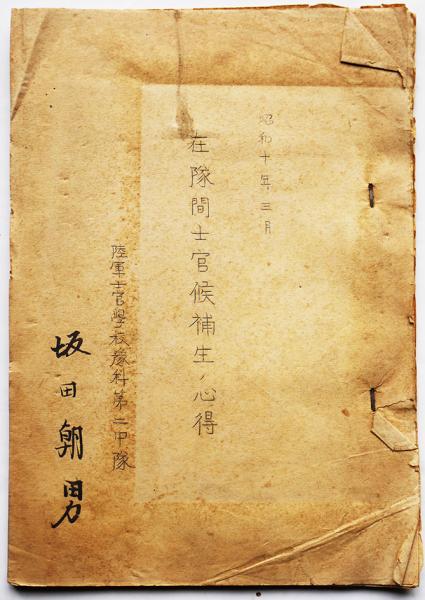 昭和十年三月
在隊間士官候補生ノ心得
陸軍士官學校豫科第二中隊
坂田朝男